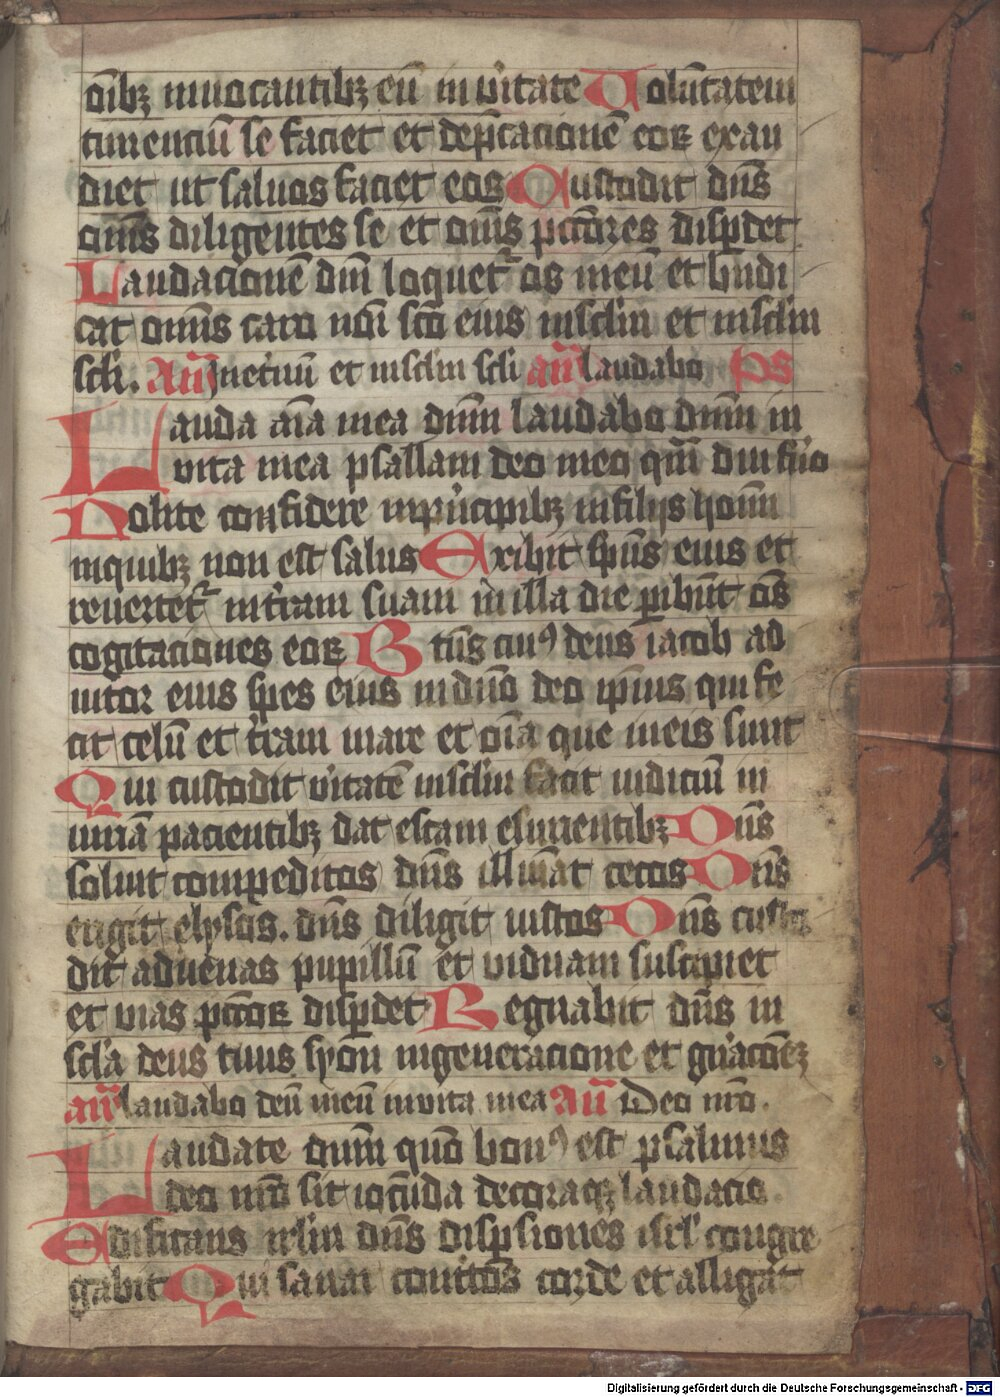 oībꝫ inuocantibꝫ eū in ūitate Uolūtatem
timenciū se faciet et dep̄cacionē eoꝝ exau
diet ut saluos faciet eos Custodit dn̄s
om̄s diligentes se et om̄s pctōres disꝑdet
Laudacionē dn̄i loquet᷑ os meū et bn̄di
cat omn̄s caro nōi sctō eius insc̄lm et insc̄lm
sc̄li. An̄ Inet̄nū et insc̄lm sc̄li an̄ laudabo Ps
Lauda aīa mea dn̄m laudabo dn̄m in
uita mea psallam deo meo qm̄ diu fūo
Nolite confidere inpͥncipibꝫ infilijs hoīm
inquibꝫ non est salus Exibit sp̄us eius et
reuertet᷑ int̄ram suam īnilla die ꝑibūt oēs
cogitaciones eoꝝ Btūs cuiꝰ deus iacob ad
iutor eius spes eius indn̄o deo ip̄ius qui fe
cit celū et t̄ram mare et oīa que ineis sunt
Qui custodit ūitatē insc̄lm facit iudiciū in
iuriā pacientibꝫ dat escam esurientibꝫ Dn̄s
soluit compeditos dn̄s illuīat cecos Dn̄s
erigit elysos. dn̄s diligit iustos Dn̄s custo
dit aduenas pupillū et viduam suscipiet
et uias pctōꝝ disꝑdet Regnabit dn̄s in
sc̄la deus tuus syon ingeneracione et gn̄acōeꝫ
an̄ laudabo deū meū inuita mea An̄ Deo nr̄o.
Laudate dnm̄ qūo bonꝰ est psalmus
deo nr̄o sit iocūda decoraqꝫ laudacio.
Edificans irlm̄ dn̄s disꝑsiones isrl̄ congre
gabit Qui sanat contͥtos corde et alligat
Digitalisierung gefördert durch die Deutsche Forschungsgemeinschaft - DFG